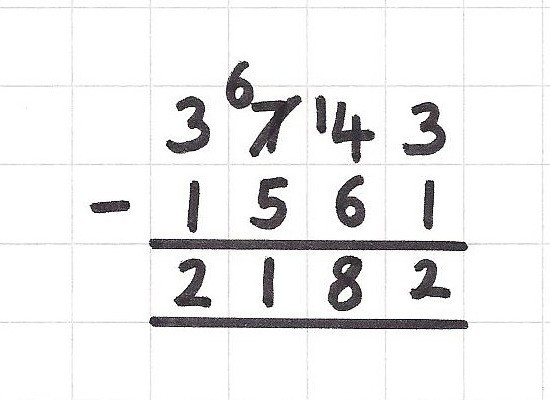 3 6 7 1 4 3
- 1 5 6 1
2 1 8 2